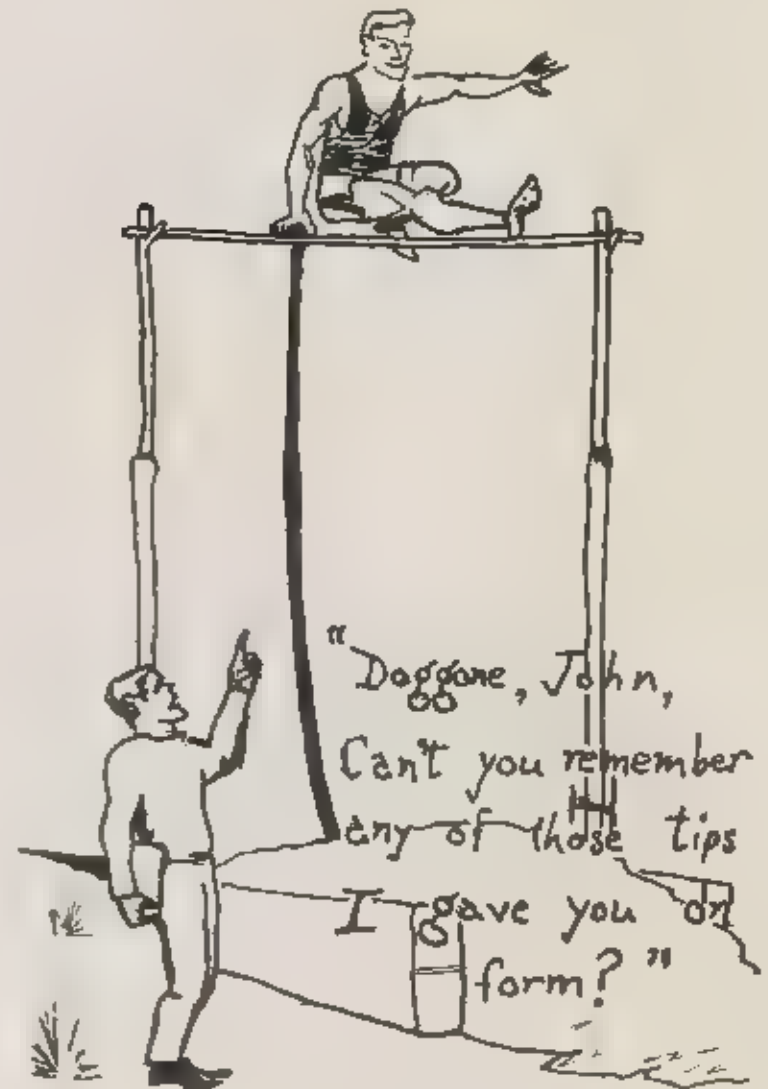 "Doggone, John,
Can't you remember
any of those tips
I gave you on
form?"